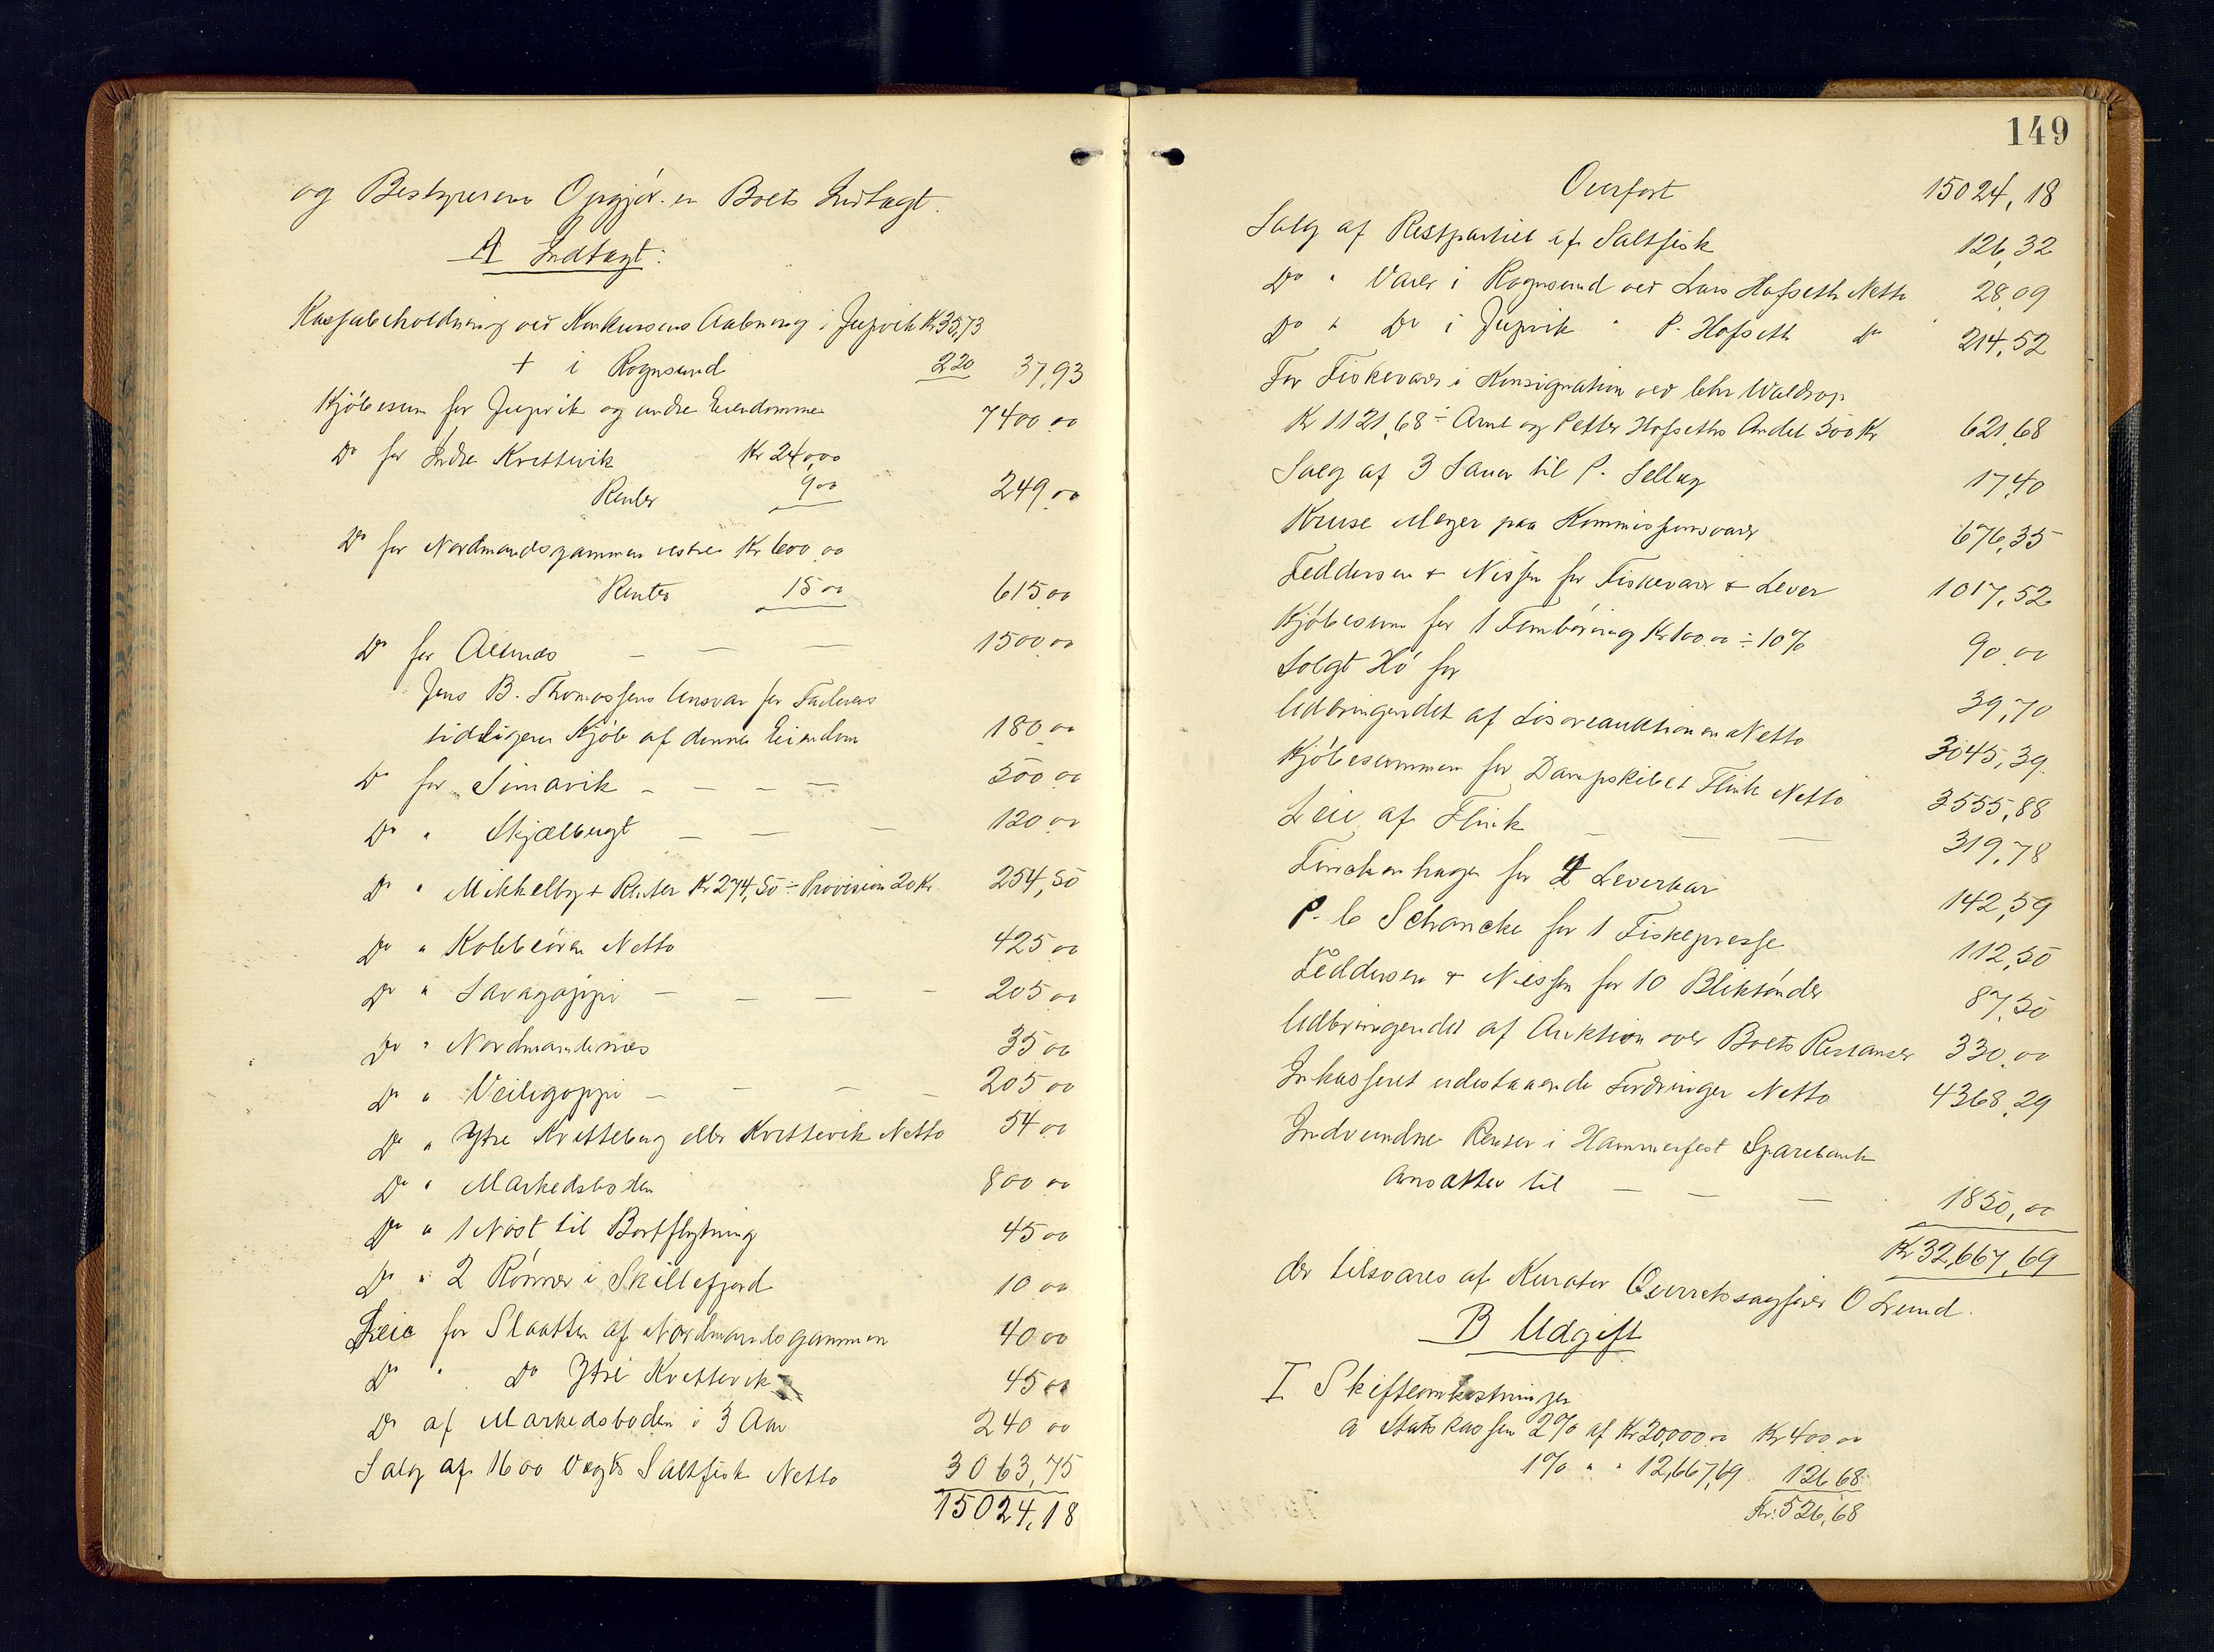 og Bestyrerens Opgjør er Boets Indtægt.
A Indtægt:
Kassabeholdning ved Konkursens Aabning i Jupvik Kr 35,73
+ i Rognsund 2 20 37,93
Kjöbesum for Jupvik og andre Eiendomme 7400 00
Do for Indre Kvittevik Kr 240,00
Renter 9 00 249 00
Do for Nordmandsgammen vestre Kr 600 00
Renter 15 00 615 00
Do for Altnes — — — 1500 00
Jens B. Thomassens Ansvar for Faderens
tidligere Kjöb af denne Eiendom 180 00
Do for Simavik — — — — 500 00
Do " Skjælbugt — — — 120 00
Do " Mikkelby + Renter Kr 274,50 ÷ Provision 20 Kr 254,50
Do " Kobbeören Netto 425 00
Do " Savagoppi — — — — 205 00
Do " Nordmandsnes 35 00
Do " Veiligoppi — — — — 205 00
Do " Ytre Kvitteberg eller Kvittevik Netto 54 00
Do " Markedsboden 800 00
Do " 1 Nöst til Bortflytning 45 00
Do " 2 Rönner i Skillefjord 10 00
Leie for Slaatten af Nordmandsgammen 40 00
Do " Do Ytre Kvittevik 45 00
Do af Markedsboden i 3 Aar 240 00
Salg af 1600 Vægts Saltfisk Netto 3063,75
15024,18
149
Overført 15024,18
Salg af Restpartiet af Saltfisk 126,32
Do " Varer i Rognsund ved Lars Hofseth Netto 28,09
Do " Do i Jupvik " P. Hofseth Do 214,52
For Fiskevarer i Konsignation ved Chr Waldrop
Kr 1121,68 ÷ Arnt og Petter Hofseths Andel 500 Kr 621,68
Salg af 3 Sauer til P. 17,40
Kruse Meyer paa Kommissionsvarer 676,35
Feddersen & Nissen for Fiskevarer & Lever 1017,52
Kjöbesum for 1 Fembøring Kr 100.00 ÷ 10% 90.00
Solgt Hö for 39,70
Udbringendet af Lösøreauktionen Netto 3045,39
Kjöbesummen for Dampskibet Flink Netto 3555,88
Leie af Flink — — — 319,78
Finckenhagen for 4 Leverkar 142,59
P. C Schancke for 1 Fiskepresse 112,50
Feddersen & Nissen for 10 Bliktönder 87,50
Udbringendet af Auktion over Boets Restanser 330.00
Inkasseret udestaaende Fordringer Netto 4368,29
Indvundne Renter i Hammerfest Sparebank
ansættes til — — — 1850,00
Kr 32,667,69
der tilsvares af Kurator Overretssagfører O Lund.
B Udgift
I Skifteomkostninger
a Statskassen 2% af Kr 20,000.00 Kr 400.00
1% " " 12,667,69 126 68
Kr. 526,68